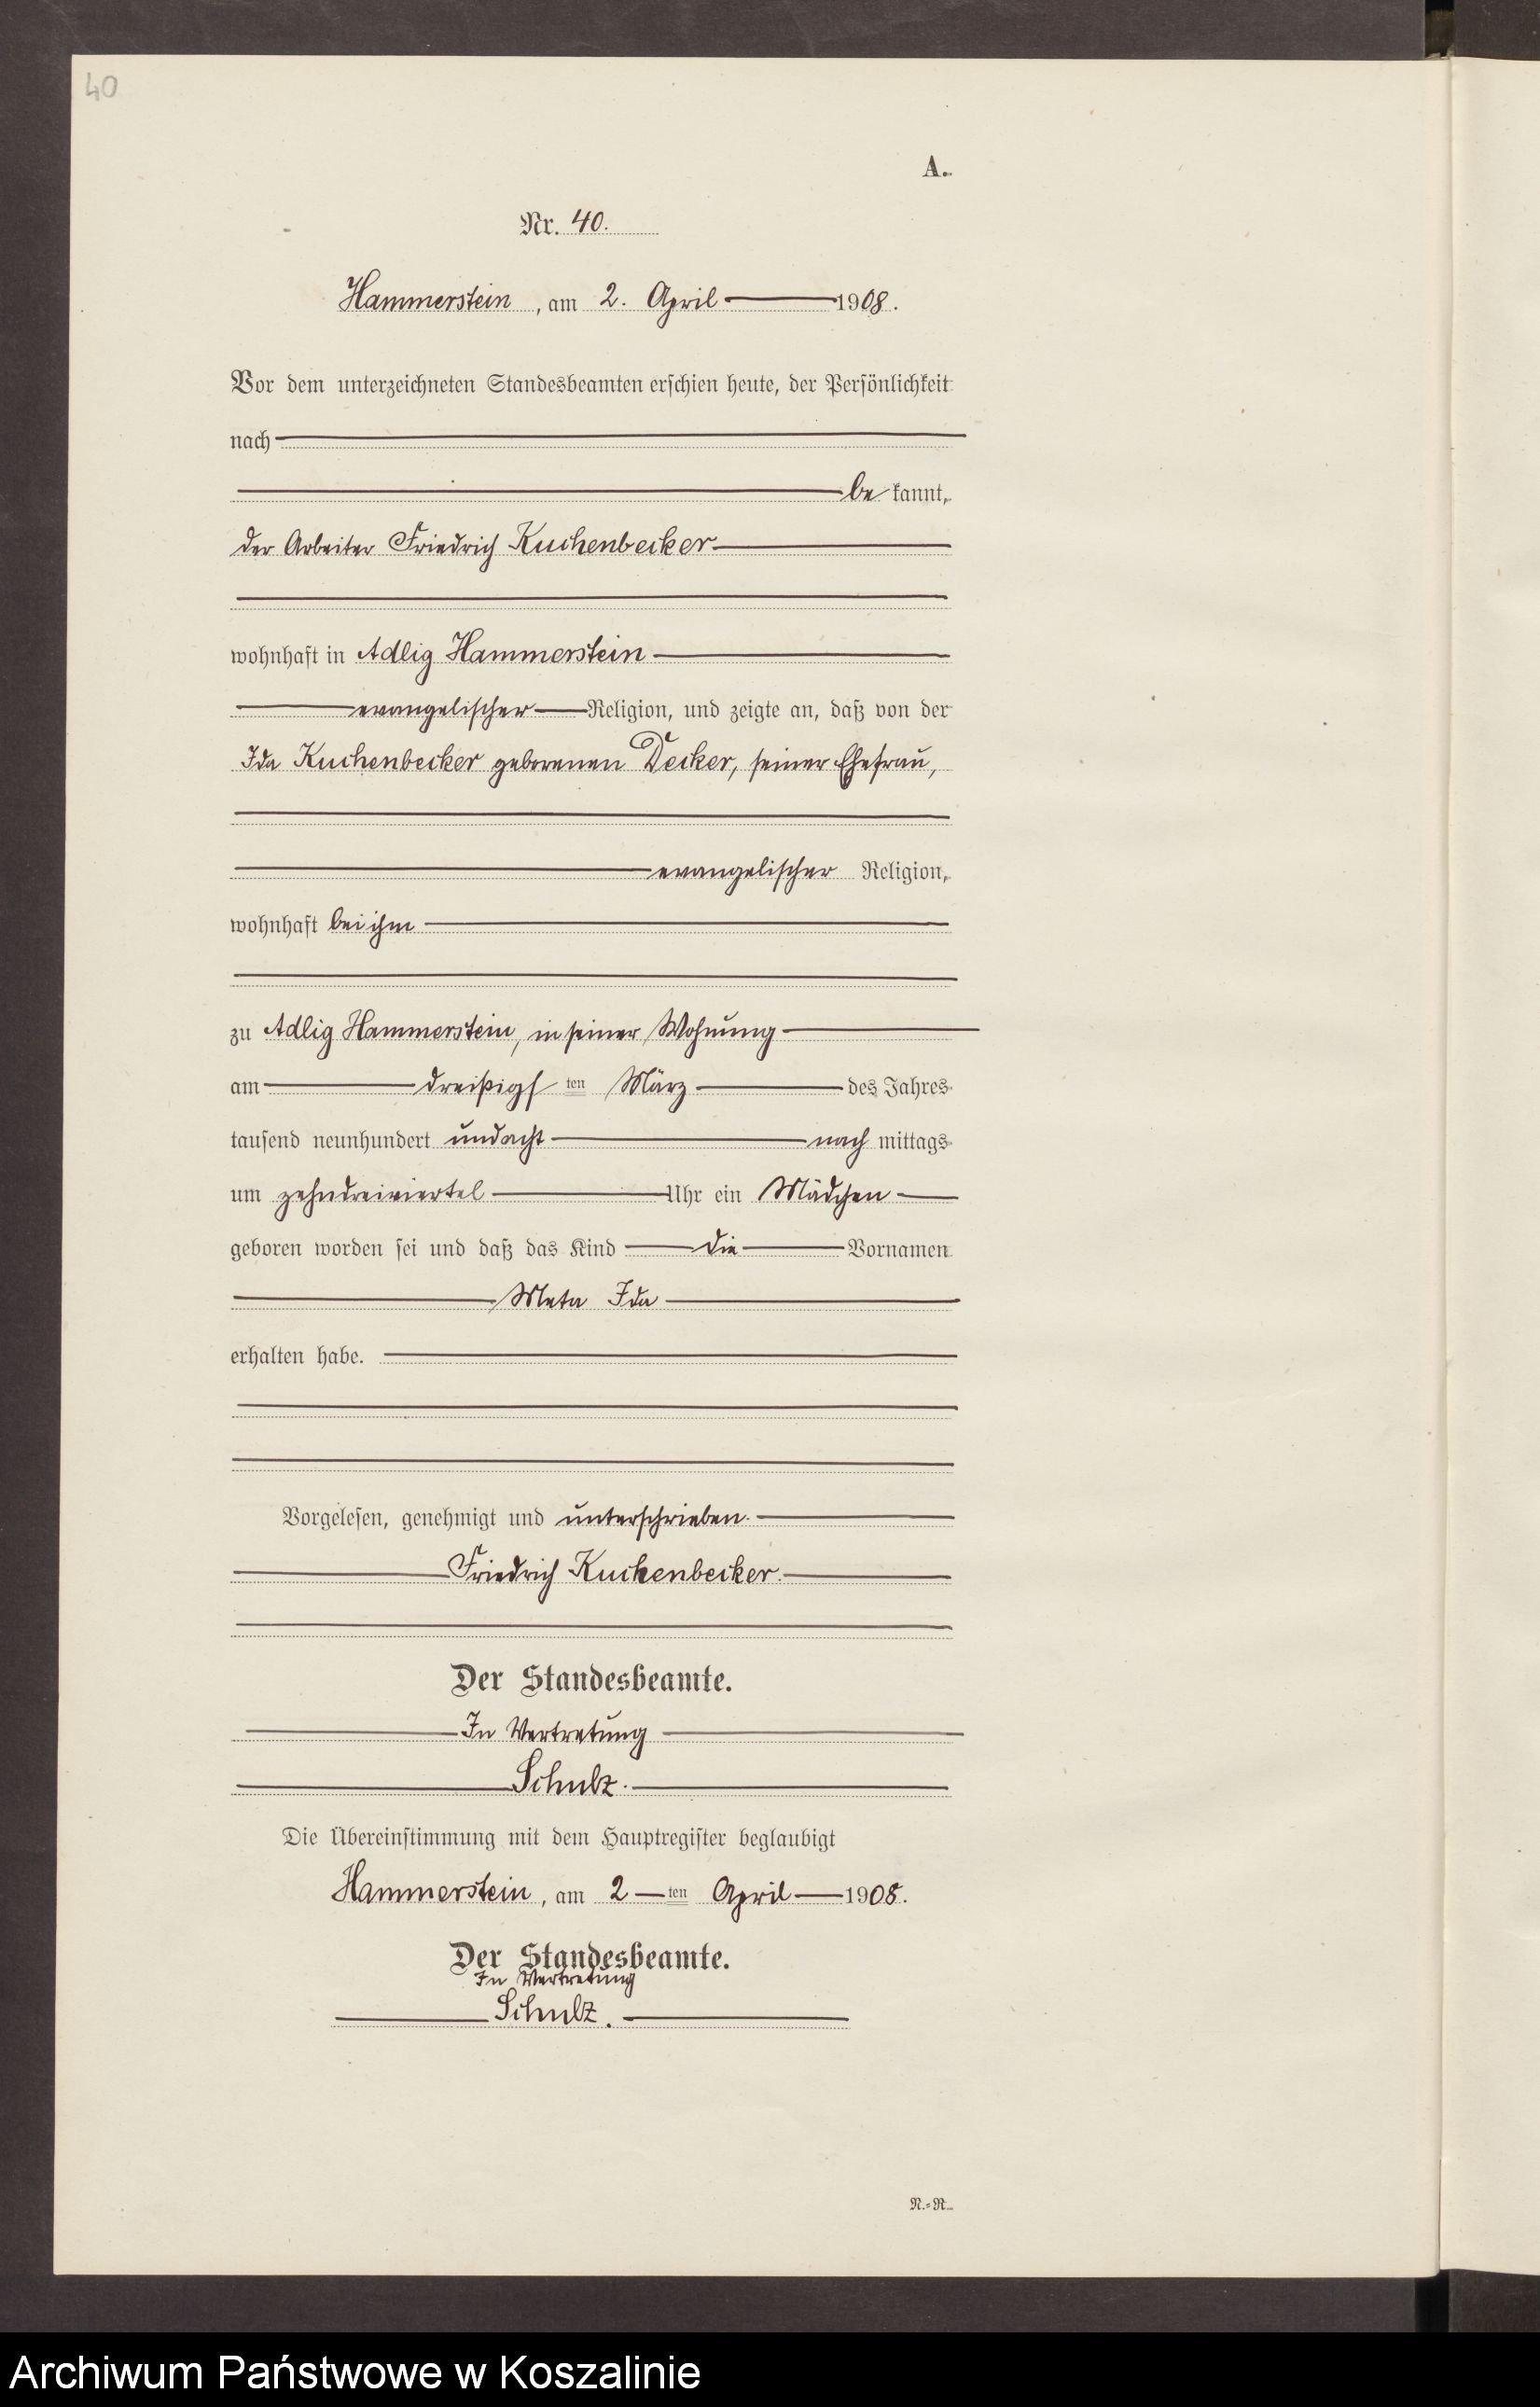 40
A.
Nr. 40.
Hammerstein, am 2. April 1908.
Vor dem unterzeichneten Standesbeamten erschien heute, der Persönlichkeit
nach
be kannt,
der Arbeiter Friedrich Kuchenbecker
wohnhaft in Adlig Hammerstein
evangelischer Religion, und zeigte an, daß von der
Ida Kuchenbecker geborenen Decker, seiner Ehefrau,
evangelischer Religion,
wohnhaft bei ihm
zu Adlig Hammerstein, in seiner Wohnung
am dreißigs ten März des Jahres
tausend neunhundert und acht nach mittags
um zehndreiviertel Uhr ein Mädchen
geboren worden sei und daß das Kind die Vornamen
Meta Ida
erhalten habe.
Vorgelesen, genehmigt und unterschrieben.
Friedrich Kuchenbecker.
Der Standesbeamte.
In Vertretung
Schulz.
Die Übereinstimmung mit dem Hauptregister beglaubigt
Hammerstein, am 2 ten April 1908.
Der Standesbeamte.
In Vertretung
Schulz.
N.=R.
Archiwum Państwowe w Koszalinie